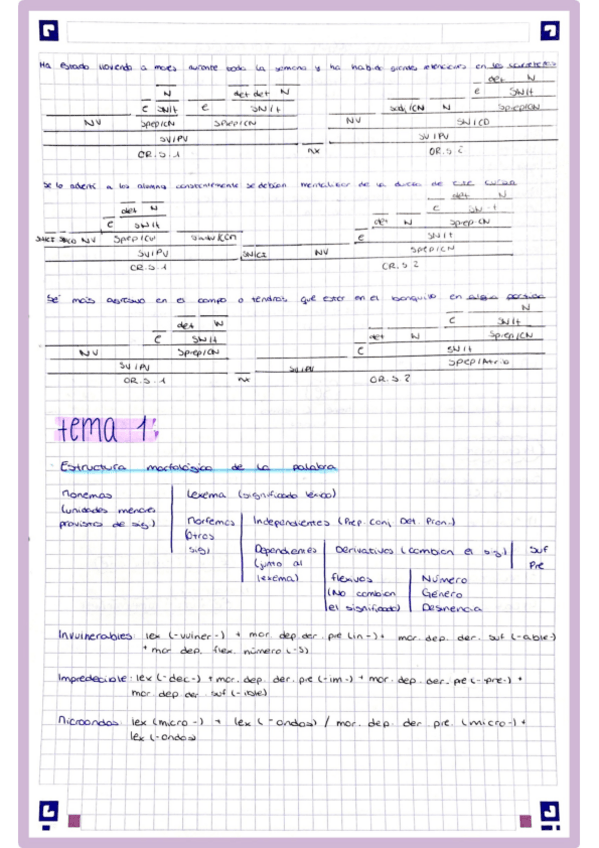 Ha estado lloviendo a mares durante toda la semana y ha habido grandes retenciones en las carreteras
det N
N det det N E SN/t
E SN/t E SN/t N SprepCN
NV Sprep/CN Sprep/CN NV SN/CD
SV/PV SV/PV
OR.S.1 nx OR.S 2
Se lo advertí a los alumnos se debían mentalizar de la de este curso
det N
det N E SN/t
E SN/t det N Sprep CN
NV E SN/t
SV/PV NV Sprep/CN
OR.S-1 OR.S 2
Sé más agresivo en el campo o tendrás que estar en el banquillo en algún partido
N
det N E SN/t
E SN/t det N Sprep/CN
NV Sprep/CN E SN/t
SV/PV SV/PV
OR.S.1 nx OR.S 2
tema 1:
Estructura morfológica de la palabra
Monemas Lexema (significado léxico)
(unidades menores
provistas de sig.) Morfemas Independientes (Prep. Conj, Det. Pron.)
(otros
sig) Dependientes Derivativos (cambian el sig.) Suf
(junto al Pre
lexema) flexivos Número
(No cambian Género
el significado) Desinencia
Invulnerables: lex (-vulner-) + mor. dep. der. pre (in-) + mor. dep. der. suf (-able-)
+ mor dep. flex. número (-s)
Impredecible: lex (-dec-) + mor. dep. der. pre (-im-) + mor. dep. der. pre (-pre-) +
mor. dep der. suf (-ible)
Microondas: lex (micro-) + lex (-ondas) / mor. dep. der. pre. (micro-) +
lex (-ondas)